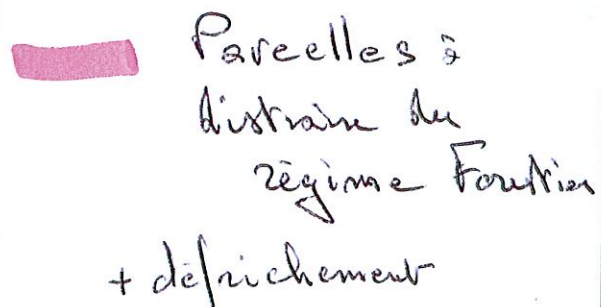 Parcelles à
distraire du
régime Forestier
+ défrichement